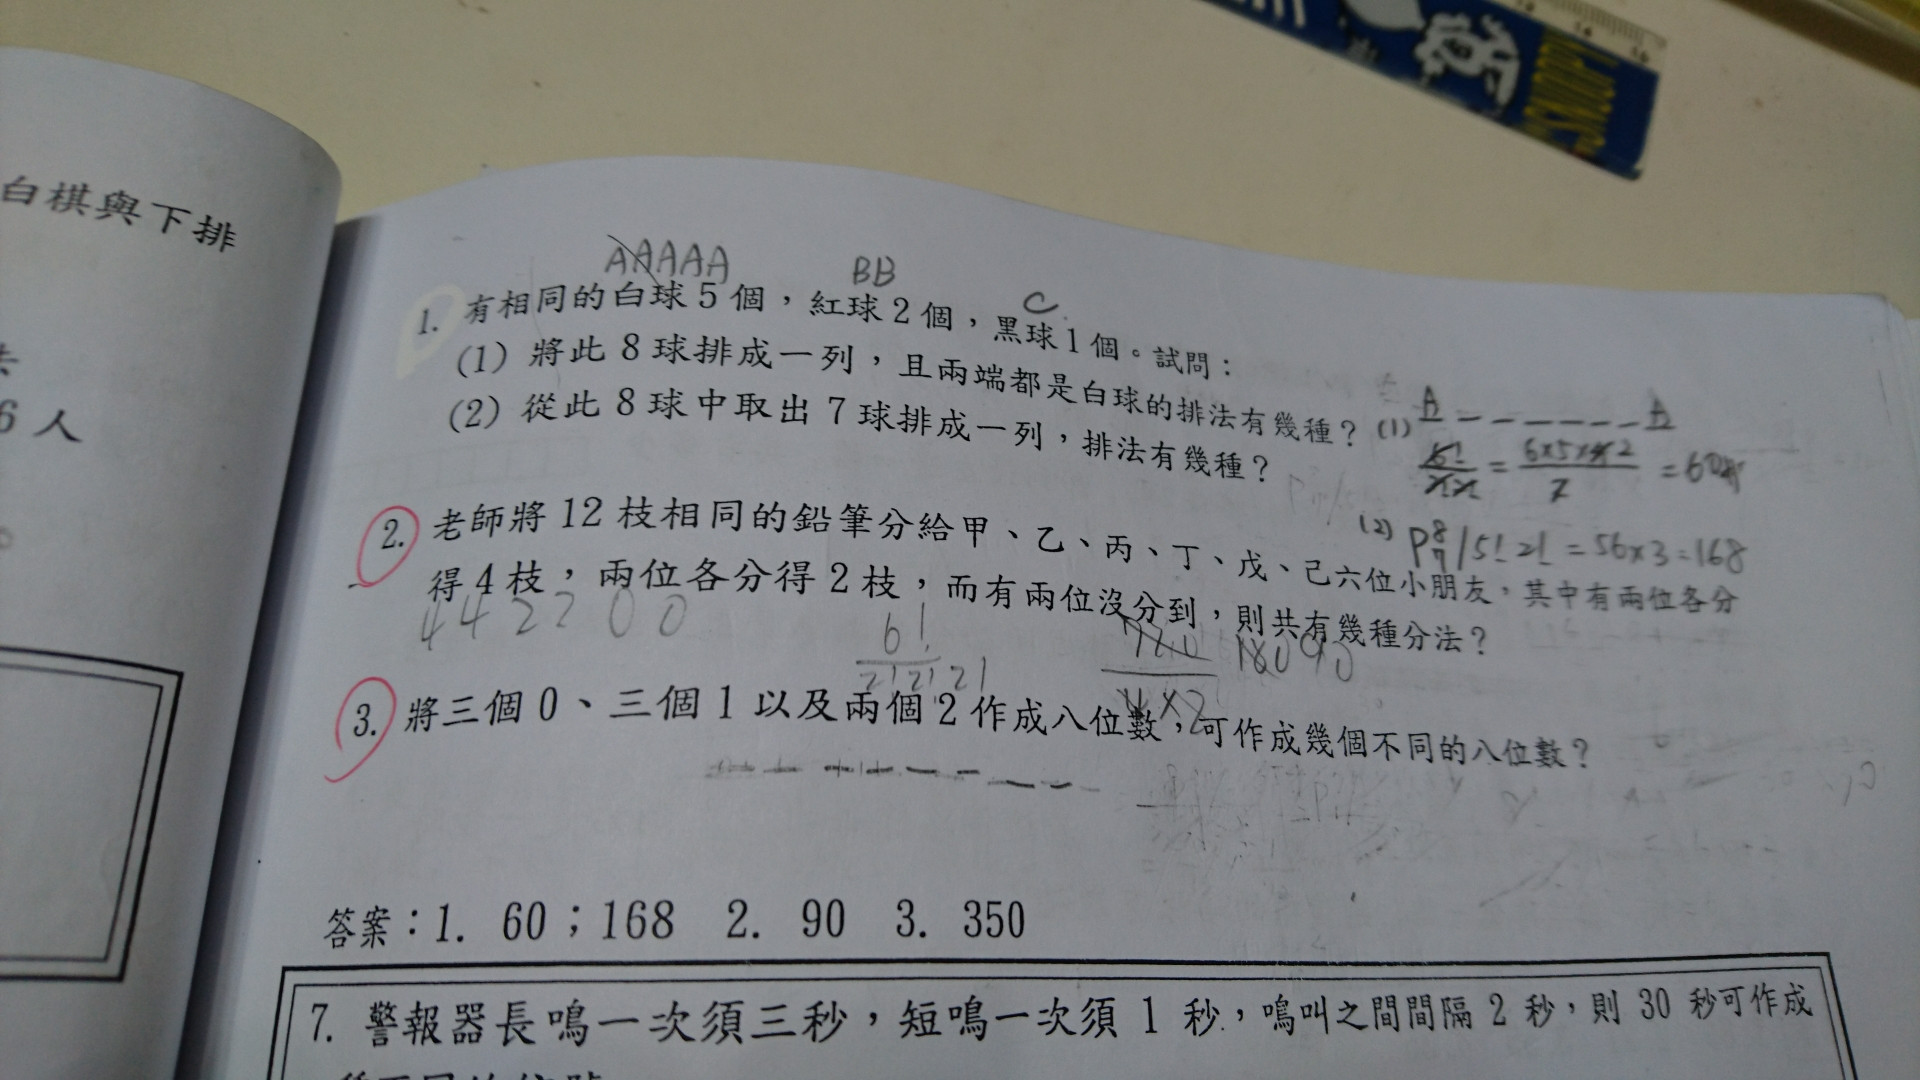 白棋與下排
6人
AAAAA BB C
1. 有相同的白球5個，紅球2個，黑球1個。試問：
(1) 將此8球排成一列，且兩端都是白球的排法有幾種？
(2) 從此8球中取出7球排成一列，排法有幾種？
(1) A _ _ _ _ _ _ A
= 60
(2) P⁸₇/5!2! = 56×3=168
2. 老師將12枝相同的鉛筆分給甲、乙、丙、丁、戊、己六位小朋友，其中有兩位各分
得4枝，兩位各分得2枝，而有兩位沒分到，則共有幾種分法？
4 4 2 2 0 0
6!
2!2!2!
720 180 90
4×2
3. 將三個0、三個1以及兩個2作成八位數，可作成幾個不同的八位數？
答案：1. 60；168 2. 90 3. 350
7. 警報器長鳴一次須三秒，短鳴一次須1秒，鳴叫之間間隔2秒，則30秒可作成